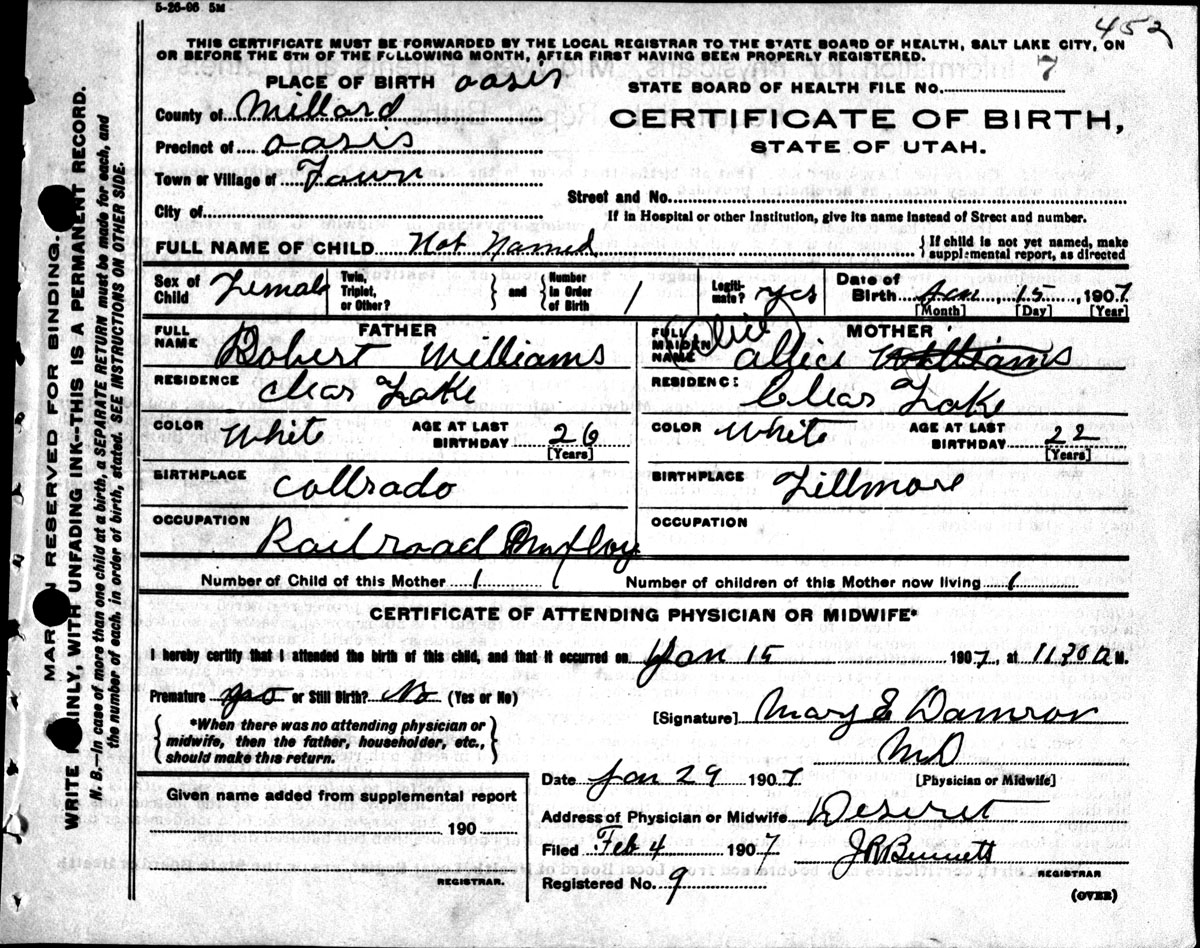 5-26-06 5M
452
THIS CERTIFICATE MUST BE FORWARDED BY THE LOCAL REGISTRAR TO THE STATE BOARD OF HEALTH, SALT LAKE CITY, ON
OR BEFORE THE 5TH OF THE FOLLOWING MONTH, AFTER FIRST HAVING BEEN PROPERLY REGISTERED.
PLACE OF BIRTH oasis
STATE BOARD OF HEALTH FILE No. 7
County of Millard
CERTIFICATE OF BIRTH,
STATE OF UTAH.
Precinct of oasis
Town or Village of Town
Street and No.
City of
If in Hospital or other Institution, give its name instead of Street and number.
FULL NAME OF CHILD Not Named
{If child is not yet named, make
supplemental report, as directed
Sex of Child Female
Twin, Triplet, or Other?
and
Number in Order of Birth 1
Legitimate? yes
Date of Birth Jan 15, 1907
[Month] [Day] [Year]
FATHER
FULL NAME Robert Williams
RESIDENCE Clear Lake
COLOR White
AGE AT LAST BIRTHDAY 26
[Years]
BIRTHPLACE Collrado
OCCUPATION Railroad Employ
MOTHER
FULL MAIDEN NAME allice Williams
RESIDENCE Clear Lake
COLOR White
AGE AT LAST BIRTHDAY 22
[Years]
BIRTHPLACE Fillmore
OCCUPATION
Number of Child of this Mother 1
Number of children of this Mother now living 1
CERTIFICATE OF ATTENDING PHYSICIAN OR MIDWIFE*
I hereby certify that I attended the birth of this child, and that it occurred on Jan 15 1907, at 11.30 M.
Premature yes or Still Birth? No (Yes or No)
{*When there was no attending physician or
midwife, then the father, householder, etc.,
should make this return.}
[Signature] Mary E Damron
MD
[Physician or Midwife]
Date Jan 29 1907
Given name added from supplemental report
190
REGISTRAR.
Address of Physician or Midwife Deseret
Filed Feb 4 1907
J R Bennett
REGISTRAR
Registered No. 9
(OVER)
MARGIN RESERVED FOR BINDING.
WRITE PLAINLY, WITH UNFADING INK--THIS IS A PERMANENT RECORD.
N. B.--In case of more than one child at a birth, a SEPARATE RETURN must be made for each, and
the number of each, in order of birth, stated. SEE INSTRUCTIONS ON OTHER SIDE.